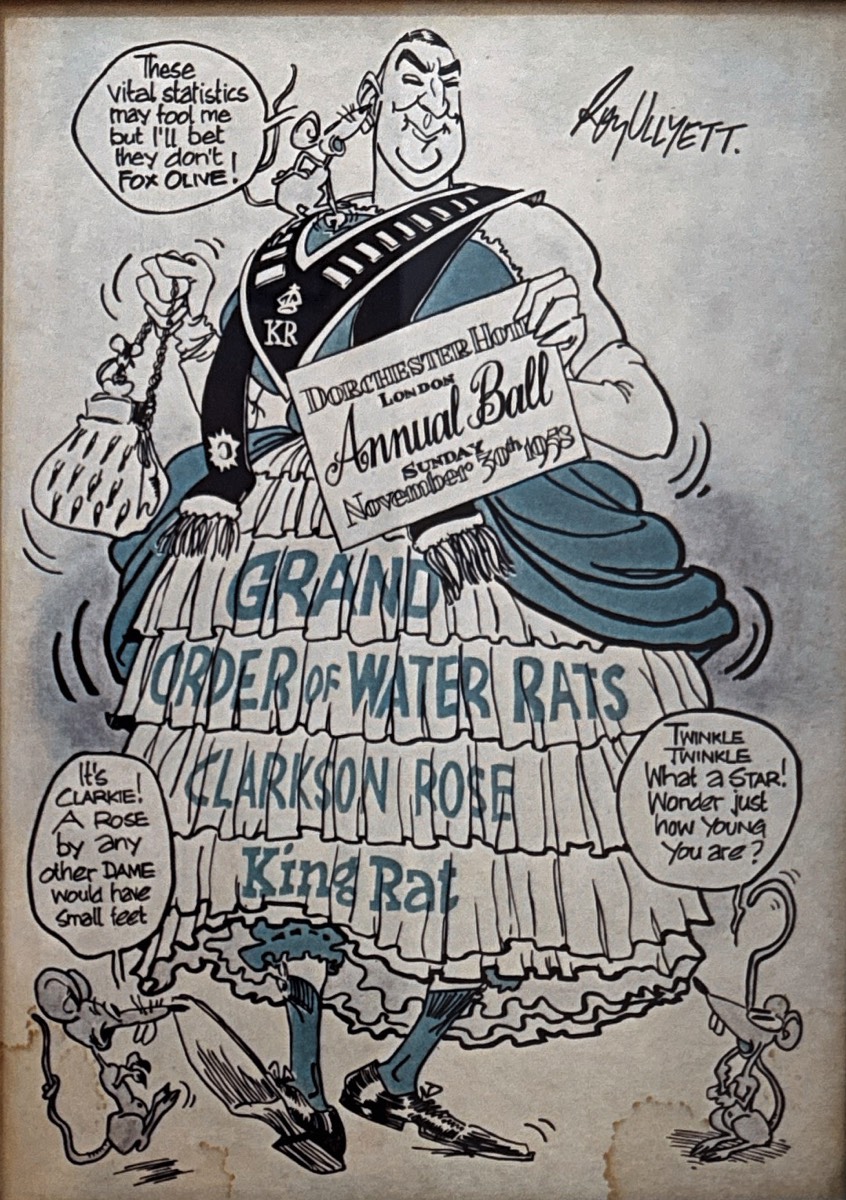 These
vital statistics
may fool me
but I'll bet
they don't
FOX OLIVE!
Roy ULLYETT.
KR
DORCHESTER HOTE
LONDON
Annual Ball
SUNDAY
November 30th 1958
GRAND
ORDER OF WATER RATS
CLARKSON ROSE
King Rat
It's
CLARKIE!
A ROSE
by any
other DAME
would have
small feet
TWINKLE
TWINKLE
What a STAR!
Wonder just
how YOUNG
You are?